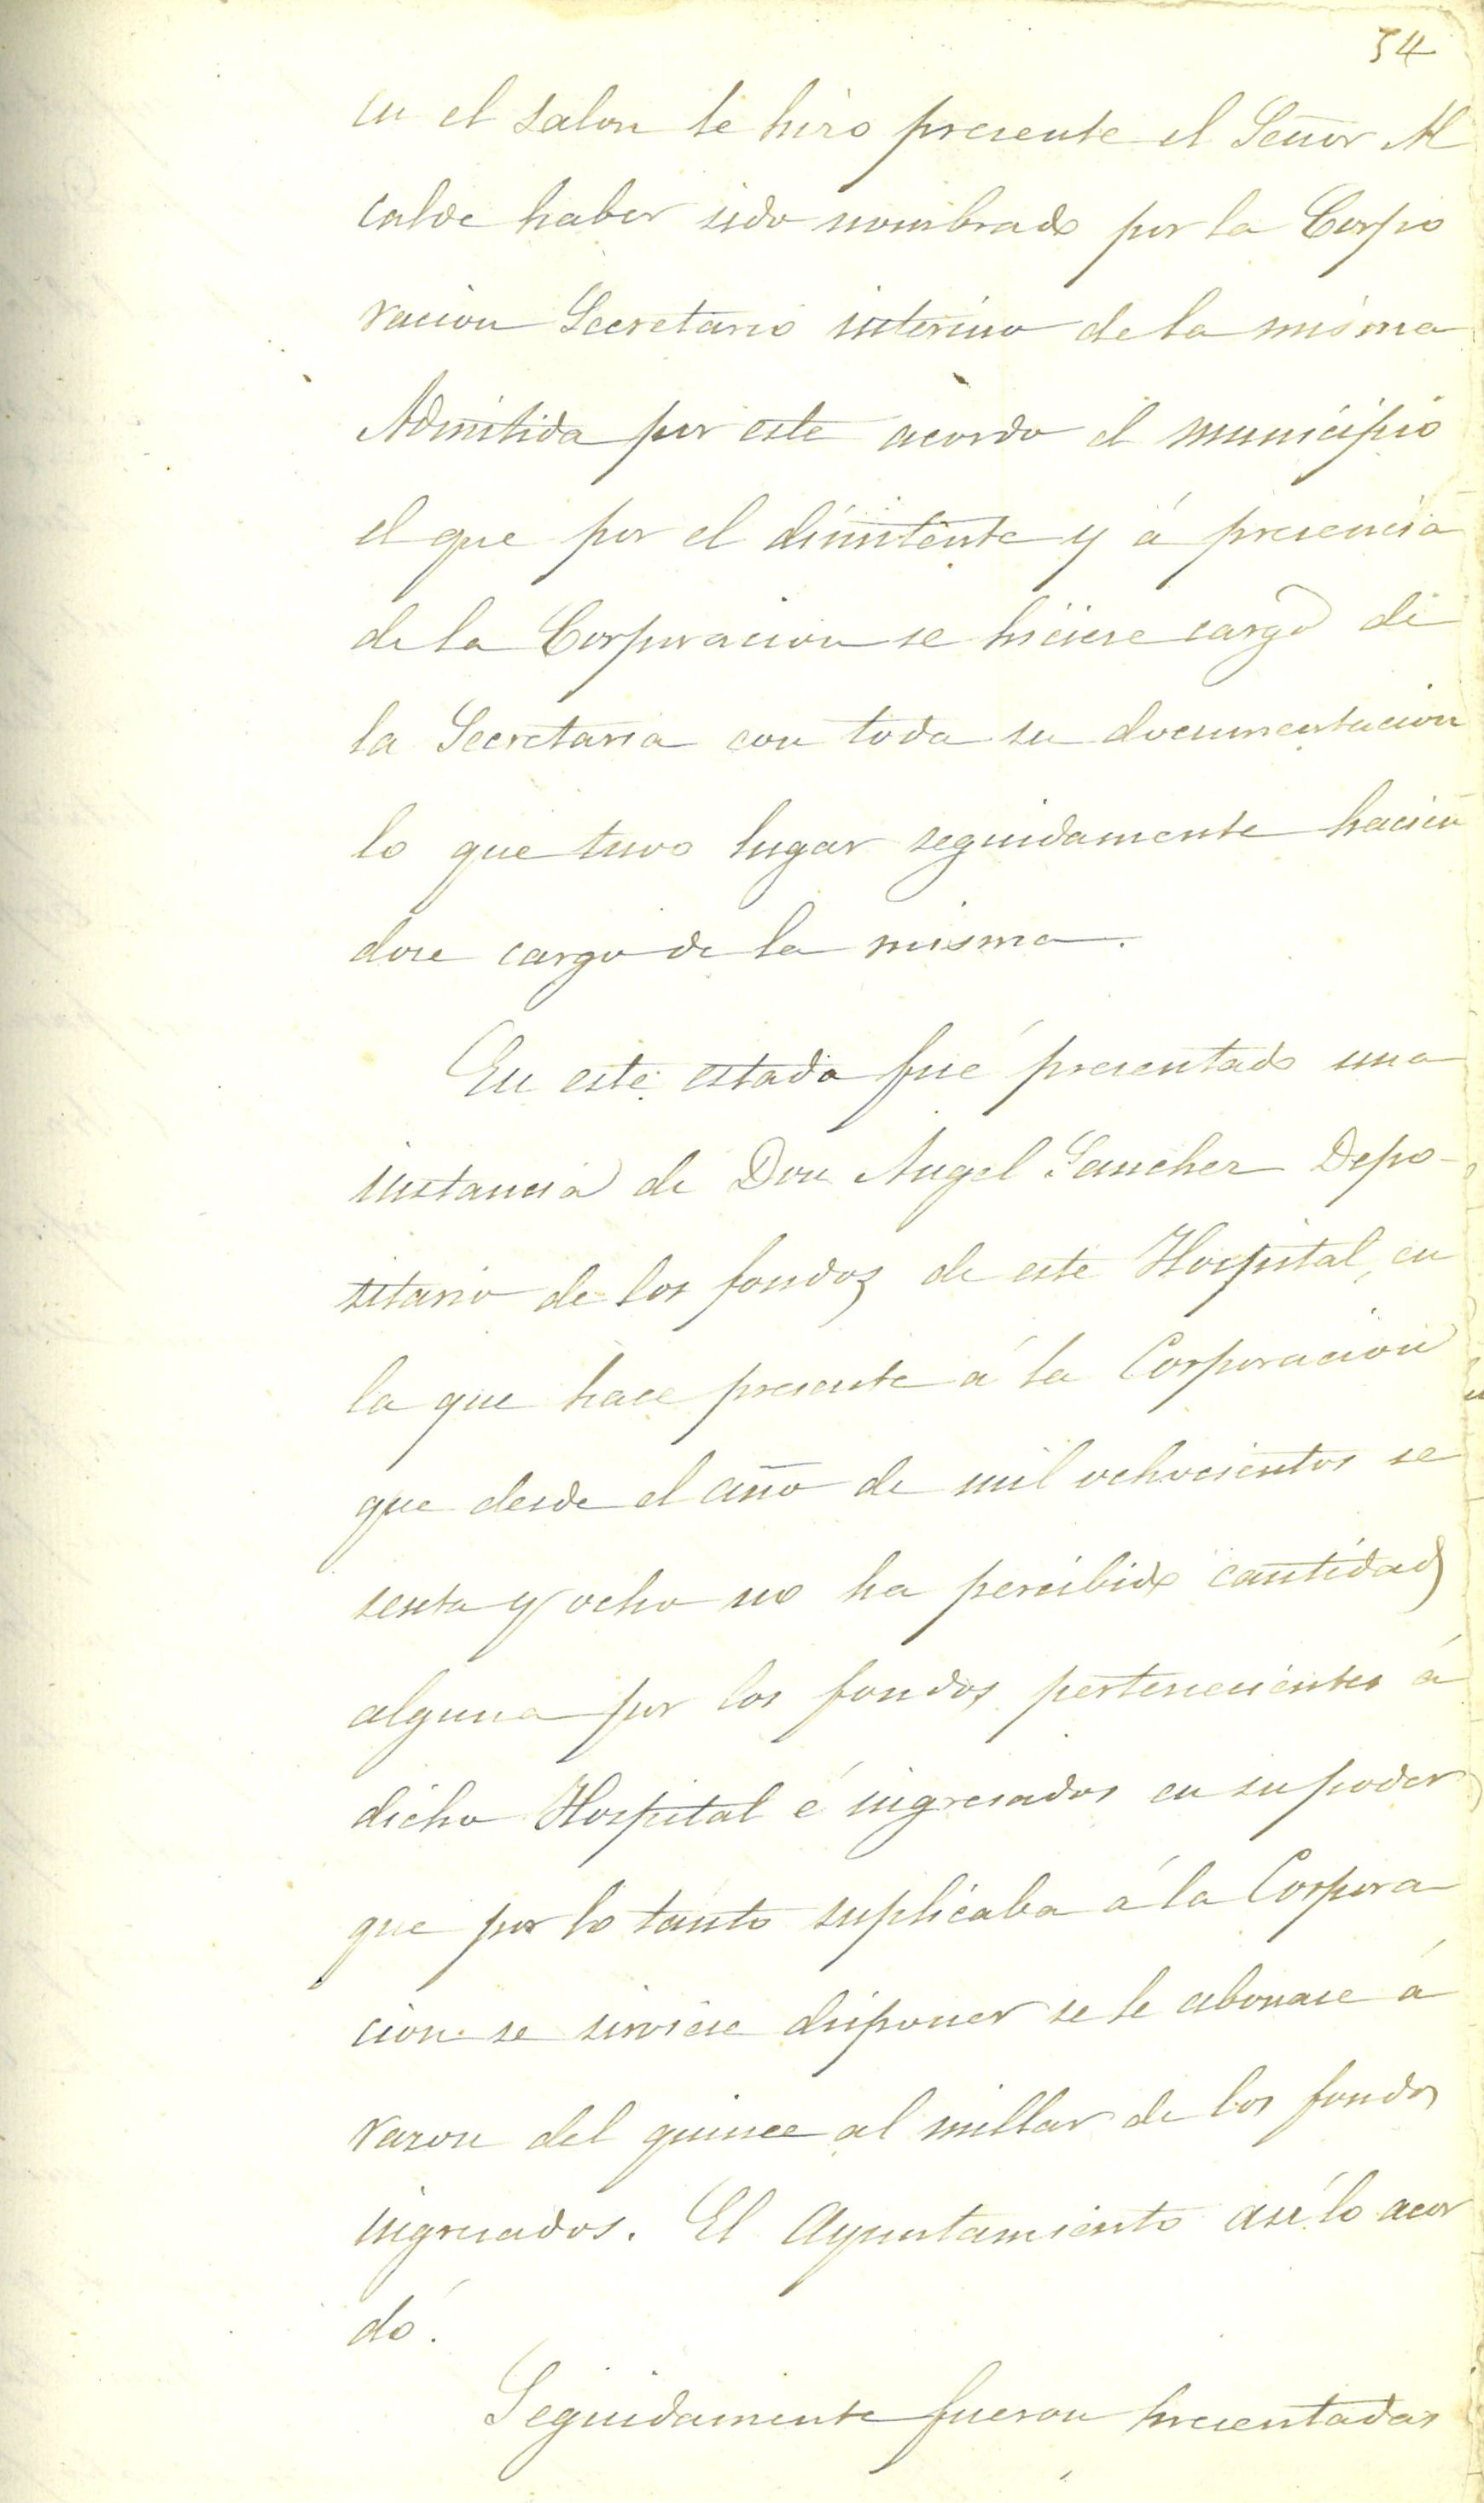 54
en el salon le hizo presente el Señor Al
calde haber sido nombrado por la Corpo
racion Secretario interino de la misma
Admitida por este acordo el municipio
el que por el dimitente y á presencia
de la Corporacion se hiciese cargo de
la Secretaria con toda su documentacion
lo que tuvo lugar seguidamente hacien
dose cargo de la misma.
En este estado fué presentado una
instancia de Don Angel Sanchez Depo-
sitario de los fondos de este Hospital, en
la que hace presente á la Corporacion
que desde el año de mil ochocientos se
senta y ocho no ha percibido cantidad
alguna por los fondos pertenecientes á
dicho Hospital é ingresados en su poder
que por lo tanto suplicaba á la Corpora
cion se sirviese disponer se le abonase á
razon del quince al millar de los fondos
ingresados. El Ayuntamiento así lo acor
dó.
Seguidamente fueron presentadas